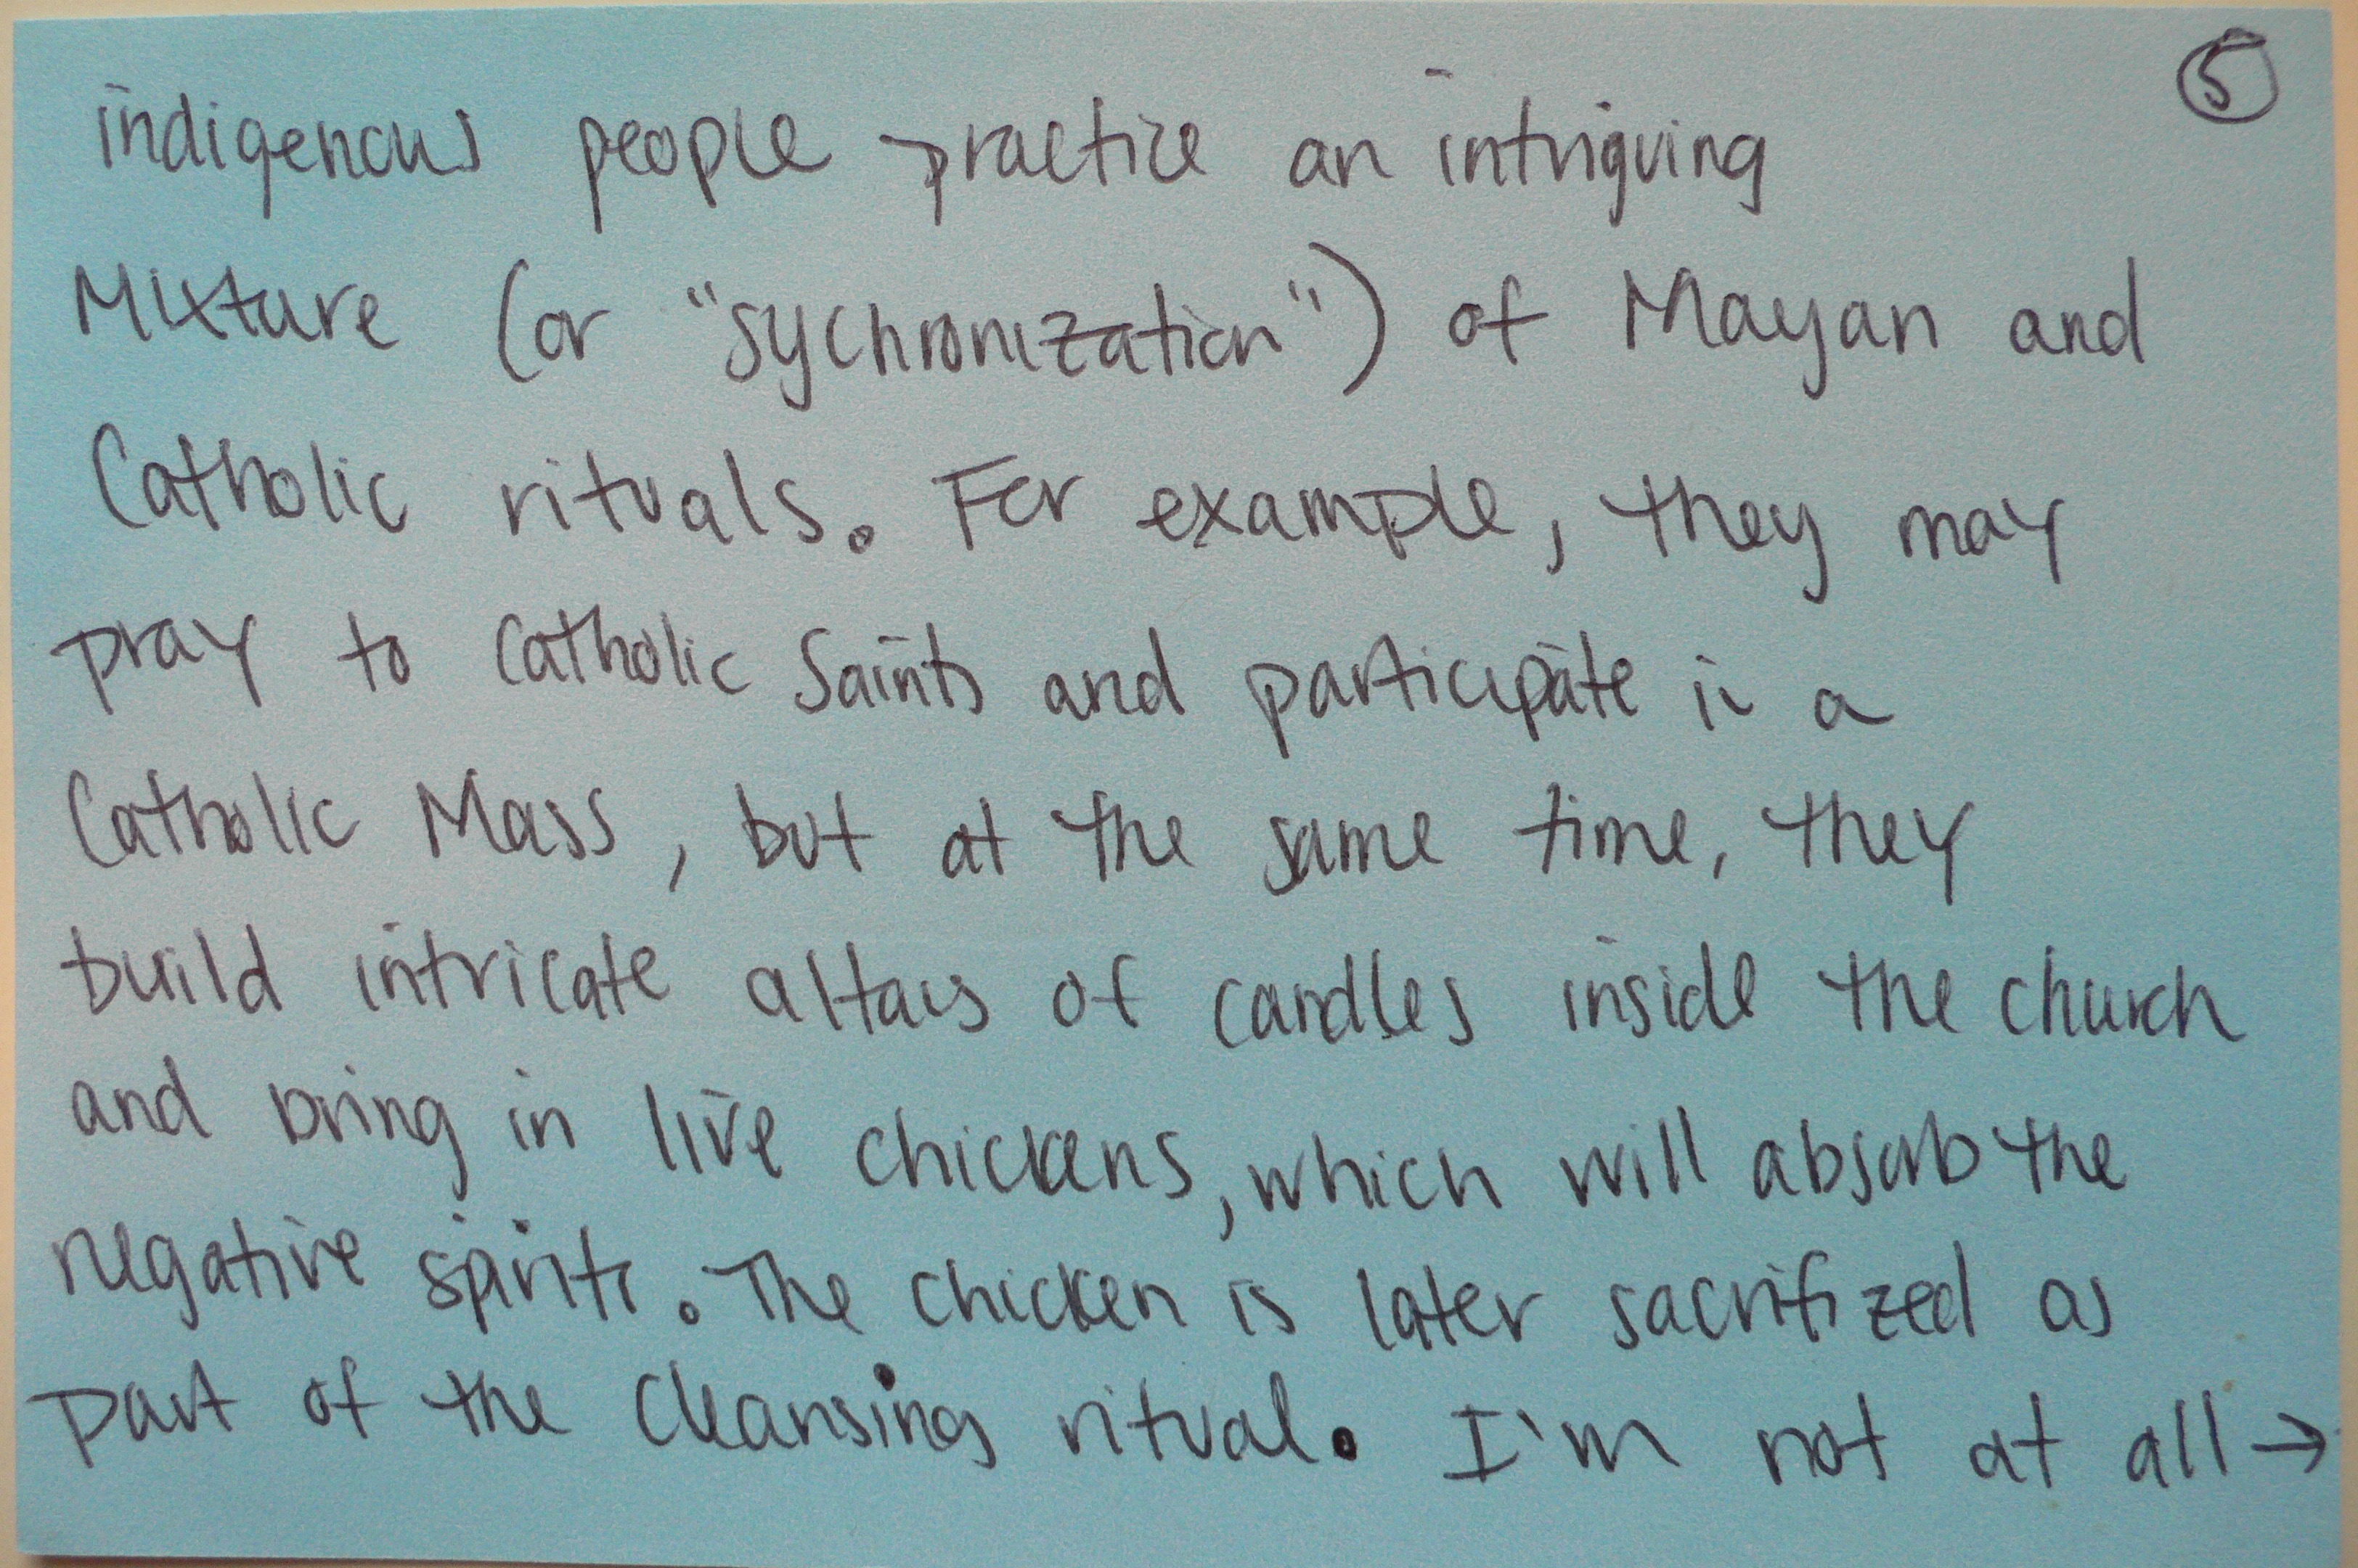 5
indigenous people practice an intriguing
Mixture (or "sychronization") of Mayan and
Catholic rituals. For example, they may
pray to Catholic Saints and participate in a
Catholic Mass, but at the same time, they
build intricate altars of candles inside the church
and bring in live chickens, which will absorb the
negative spirits. The chicken is later sacrifized as
part of the cleansing ritual. I'm not at all →